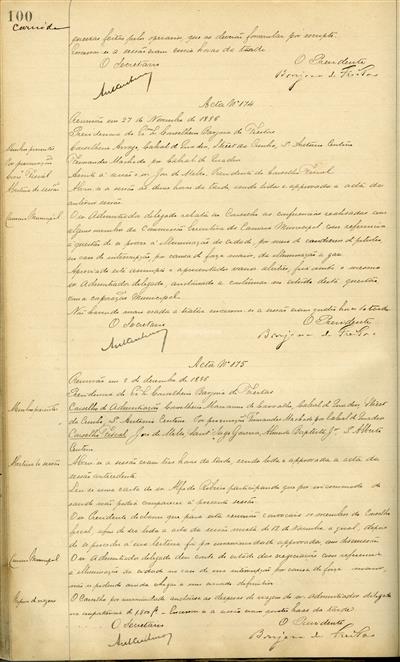 100
queixas feitas pelo operario, que as deverão formular por escripto.
Encerrou-se a sessão eram cinco horas da tarde
O Secretario O Presidente
Acta Nº 174
Reunião em 27 de Novembro de 1886
Presidencia do Exmo Conselheiro Barjona de Freitas
Conselheiro Arrojo, Cabral de Quadros, Skeet da Cunha, S. Antero Centeno
Fernandes Machado por Cabral de Quadros
Assistiu á sessão o sr. José de Mello, Presidente do Conselho Fiscal
Abertura da sessão
Abriu-se a sessão ás duas horas da tarde, sendo lida e approvada a acta da
anterior sessão
Camara Municipal
O sr Administrador delegado relatou ao Conselho as conferencias realisadas com
alguns membros da Commissão Executiva da Camara Municipal com referencia
á questão de se prover á illuminação da cidade, por meio de candieiros de petroleo,
no caso de interrupção, por causa de força maior, da illuminação a gaz
Apreciado este assumpto e apresentados varios alvitres, foi o mesmo
sr Administrador delegado, auctorisado a continuar no estudo desta questão
com a corporação Municipal.
Não havendo mais nada a tratar encerrou-se a sessão eram quatro horas da tarde
O Secretario O Presidente
Acta Nº 175
Reunião em 2 de dezembro de 1886
Presidencia do Exmo Conselheiro Barjona de Freitas
Conselho de Administração Conselheiro Marianno de Carvalho, Cabral de Quadros, Skeet
da Cunha, S. Antero Centeno Fernandes Machado por Cabral de Quadros
Conselho Fiscal José de Mello, Almeida Baptista Jr S. Alberto
Centeno
Abertura da sessão
Abriu-se a sessão eram tres horas da tarde, sendo lida e approvada a acta da
sessão antecedente
Leu-se uma carta do sr Alfredo Ribeiro participando que por incommodo de
saude não poderá comparecer á presente sessão.
O sr Presidente declarou que para esta reunião convocara os membros do Conselho
fiscal, afim de ser lida a acta da sessão mixta de 12 de Novembro a qual, depois
de se proceder á sua leitura foi por unanimidade approvada, sem discussão
Camara Municipal
O sr Administrador delegado deu conta do estado das negociações com referencia
á illuminação da cidade no caso de uma interrupção por causa de força maior,
não se podendo ainda chegar a um accordo definitivo
O Conselho por unanimidade auctorisou as despezas de viagem do sr. Administrador delegado
na importancia de Encerrou-se a sessão eram quatro horas da tarde
O Secretario O Presidente